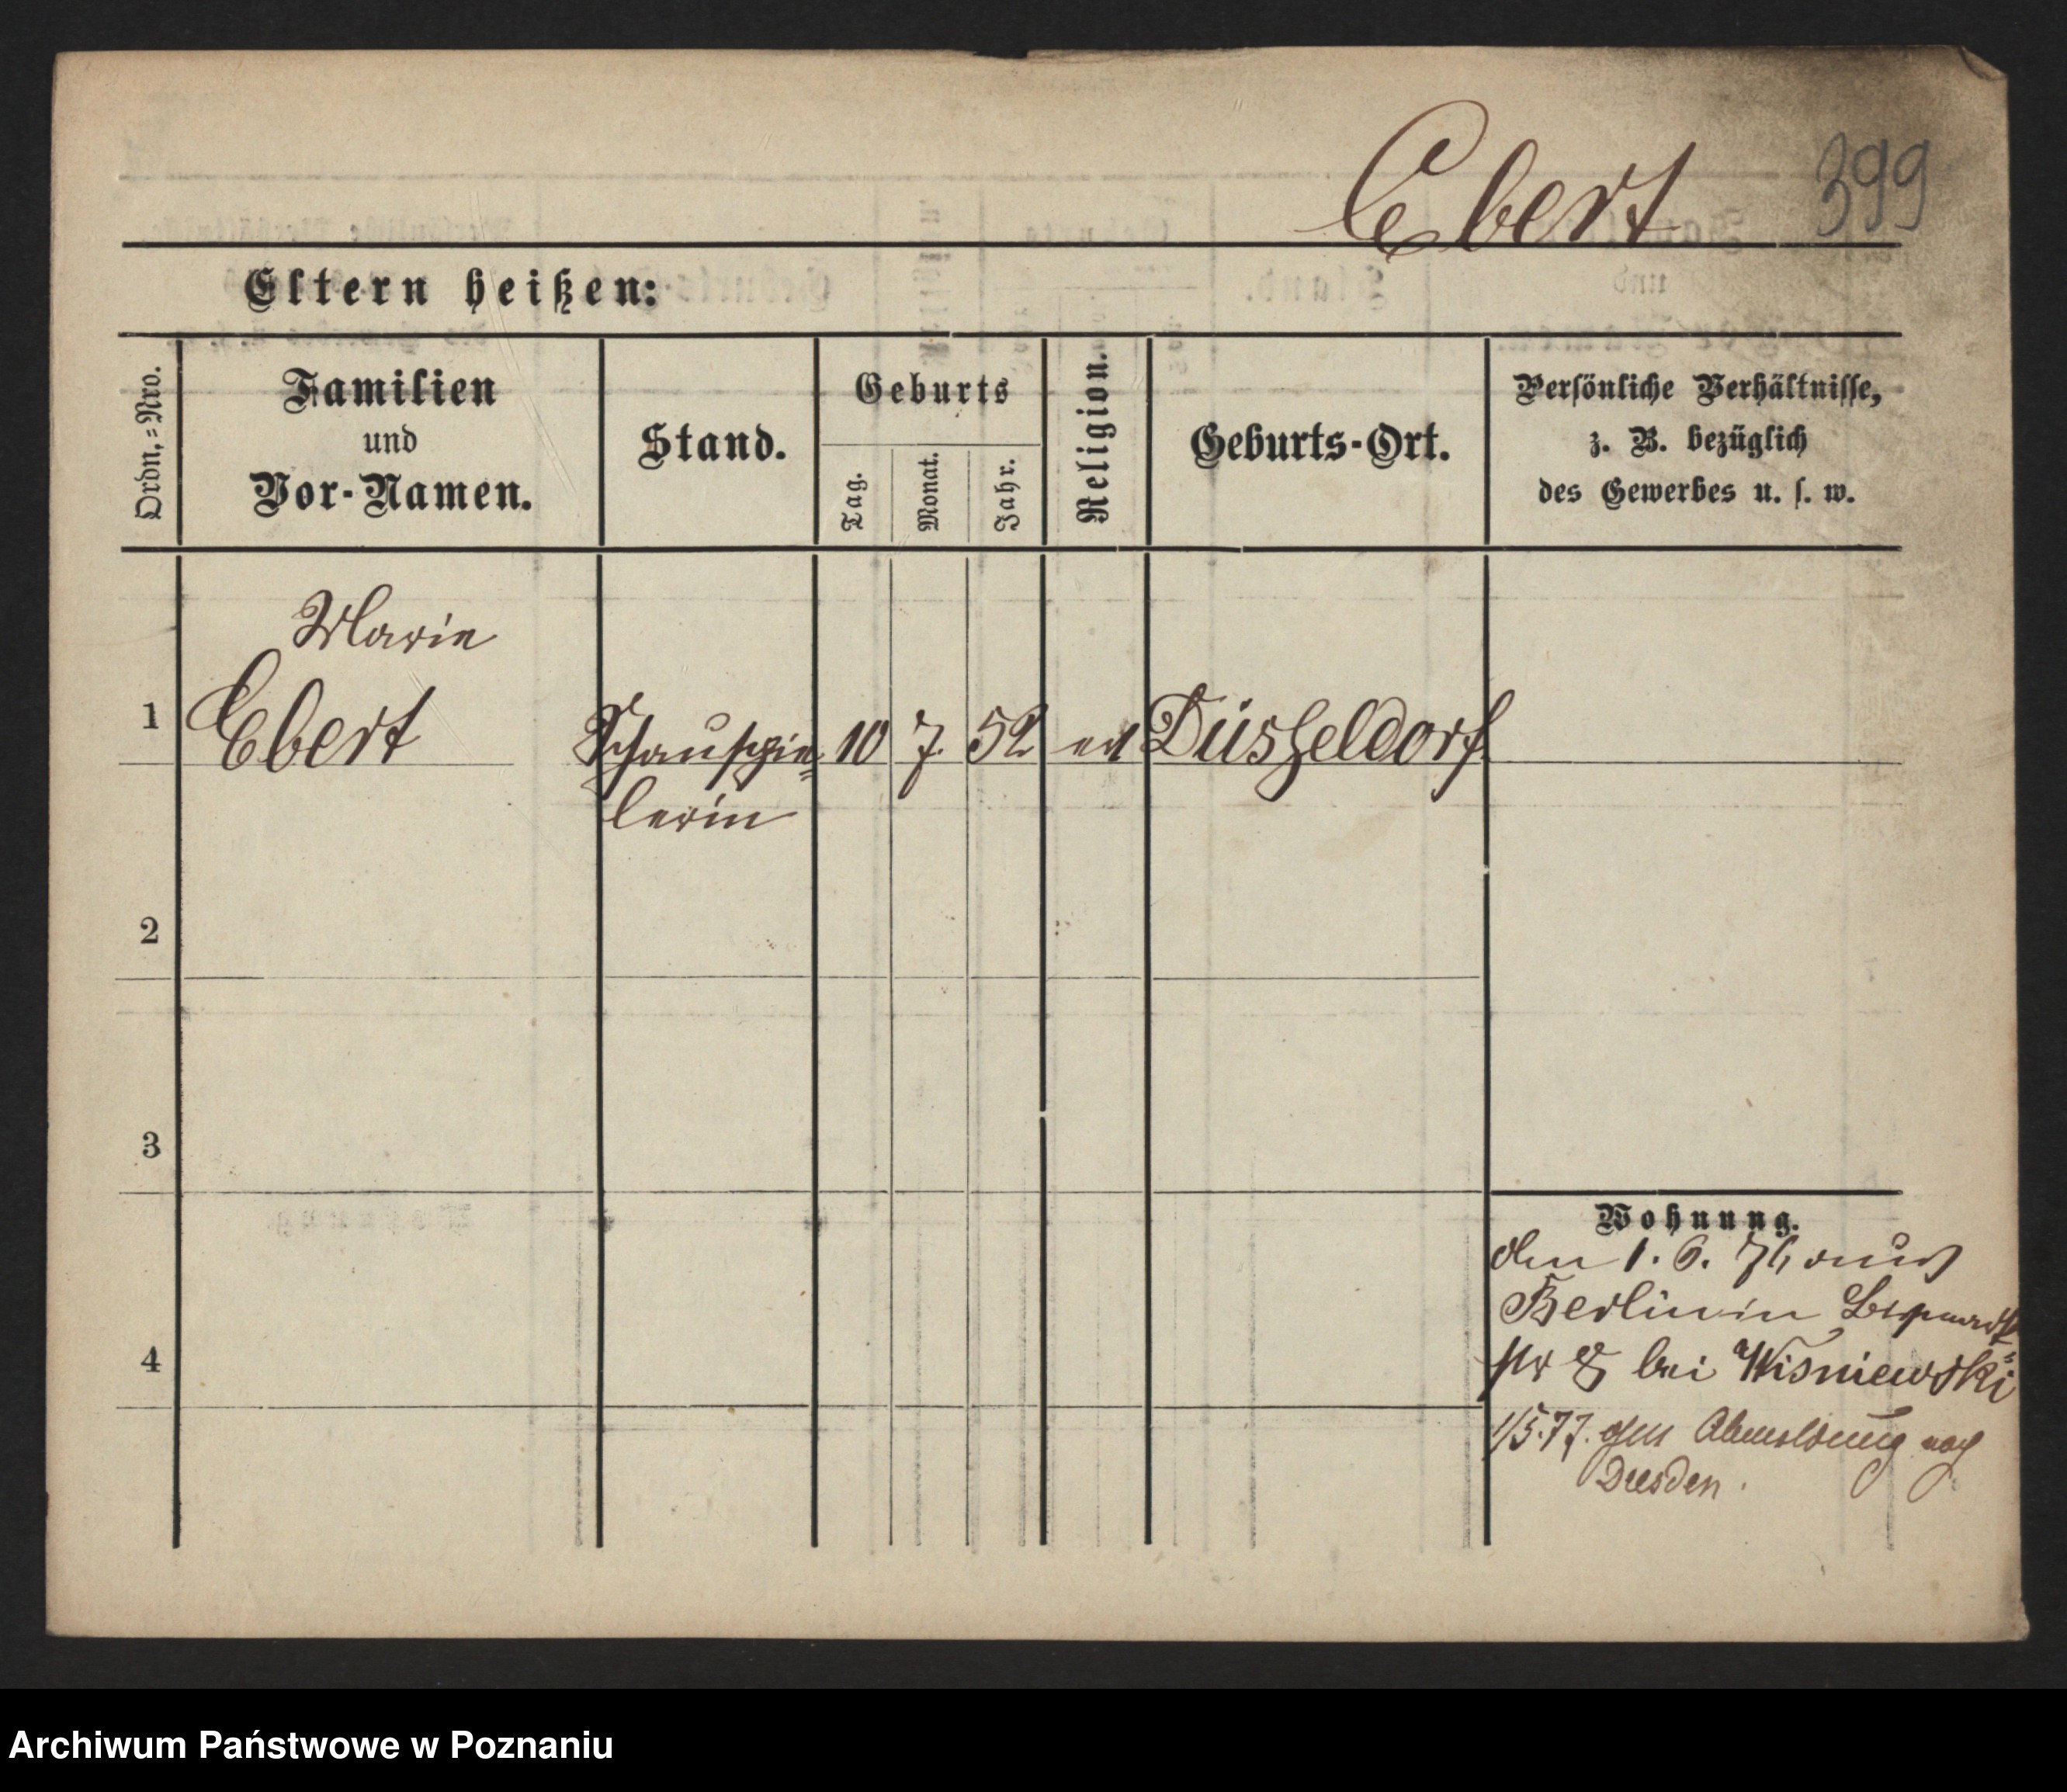 Ebert 399
Eltern heißen:
Ordn.=Nro.
Familien
und
Vor-Namen.
Stand.
Geburts
Tag.
Monat.
Jahr.
Religion.
Geburts-Ort.
Persönliche Verhältnisse,
z. B. bezüglich
des Gewerbes u. s. w.
Marie
1 Ebert Schauspie= 10 7. 52 Düsseldorf
lerin
2
3
4
Wohnung.
den 1. 6. 76 aus
Berlin in
str 8 bei Wisniewski
1/5.77. Abmeldung nach
Dresden.
Archiwum Państwowe w Poznaniu